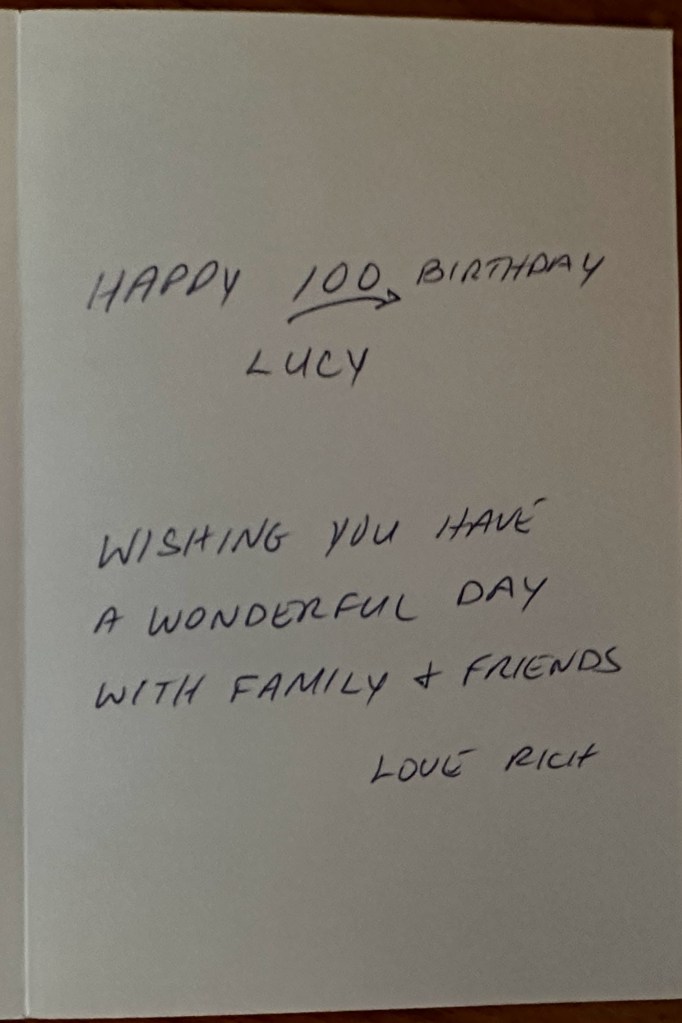 HAPPY 100 BIRTHDAY
LUCY
WISHING YOU HAVE
A WONDERFUL DAY
WITH FAMILY + FRIENDS
LOVE RICH